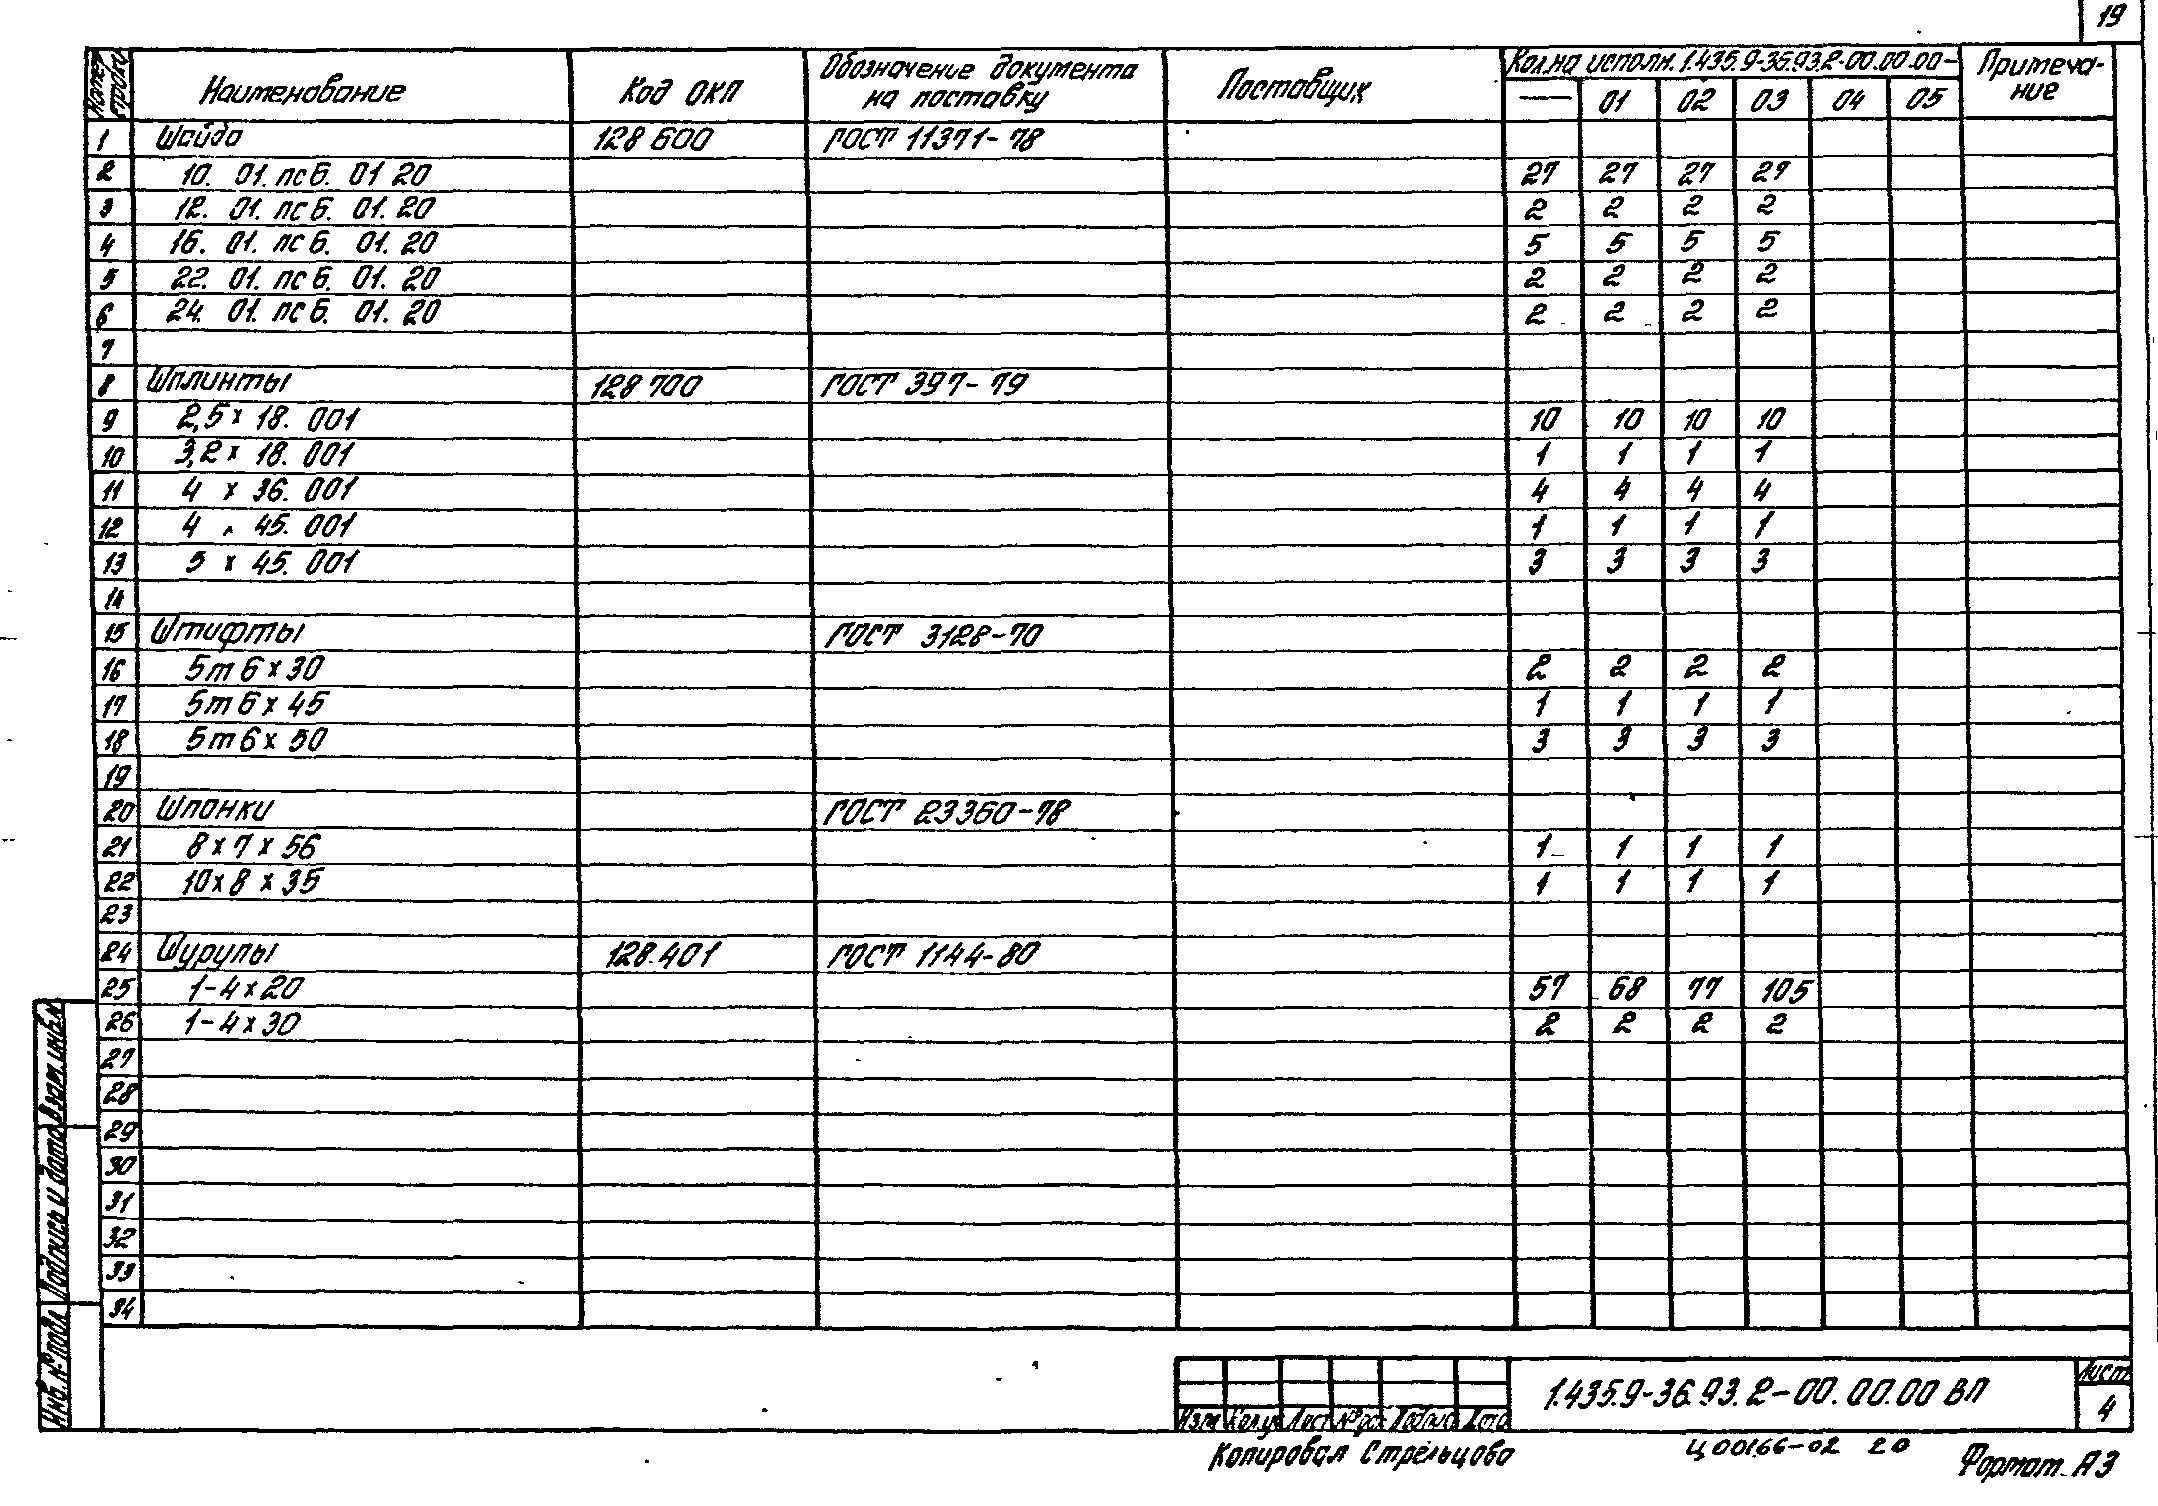 19
№ строки Наименование Код ОКП Обозначение документа на поставку Поставщик Кол. на исполн. 1.435.9-36.93.2-00.00.00- Примечание
— 01 02 03 04 05
1 Шайба 128 600 ГОСТ 11371-78
2 10. 01. пс 6. 01 20 27 27 27 27
3 12. 01. пс 6. 01. 20 2 2 2 2
4 16. 01. пс 6. 01. 20 5 5 5 5
5 22. 01. пс 6. 01. 20 2 2 2 2
6 24. 01. пс 6. 01. 20 2 2 2 2
7
8 Шплинты 128 700 ГОСТ 397-79
9 2,5 x 18. 001 10 10 10 10
10 3,2 x 18. 001 1 1 1 1
11 4 x 36. 001 4 4 4 4
12 4 x 45. 001 1 1 1 1
13 5 x 45. 001 3 3 3 3
14
15 Штифты ГОСТ 3128-70
16 5m6 x 30 2 2 2 2
17 5m6 x 45 1 1 1 1
18 5m6 x 50 3 3 3 3
19
20 Шпонки ГОСТ 23360-78
21 8 x 7 x 56 1 1 1 1
22 10 x 8 x 35 1 1 1 1
23
24 Шурупы 128.401 ГОСТ 1144-80
25 1-4 x 20 57 68 77 105
26 1-4 x 30 2 2 2 2
27
28
29
30
31
32
33
34
Взам. инв. №
Подпись и дата
Инв. № подл
1.435.9-36.93.2-00.00.00 ВП
Лист
4
Изм Кол.уч Лист № док Подпись Дата
Копировал Стрельцова
Ц00166-02 20
Формат А3